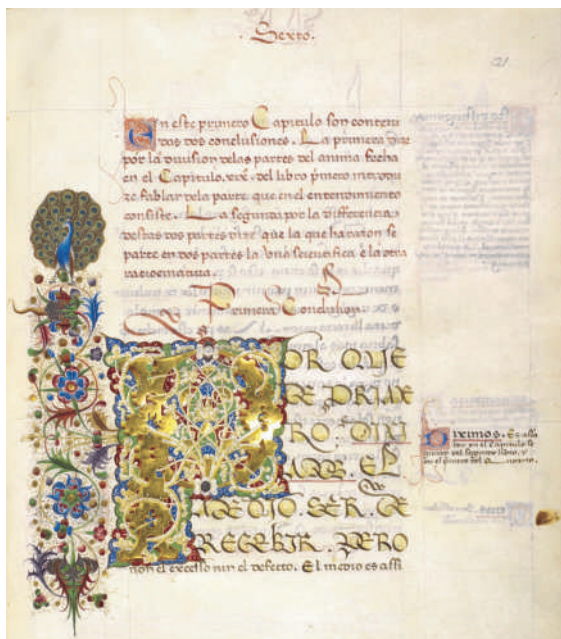 . Sexto.
En este primero Capitulo son conteni
das dos conclusiones. La primera dize
por la diuision delas partes del anima fecha
en el Capitulo. del libro pmero introdu
ze fablar dela parte que en el entendimiento
consiste. La segunda por la differencia
destas dos partes dize que la que ha razon se
parte en dos partes la vna scientifica e la otra
raciocinatiua.
Primera Conclusion.
POR QUE
DE PRIME
RO. DIXI
MOS. EL
MEDIO. SER. DE
RECEBIR. PERO
non el excesso nin el defecto. El medio es assi
Diximos. Es assi
en el Capitulo se
del segundo libro, y
en el pmero del Quarto.